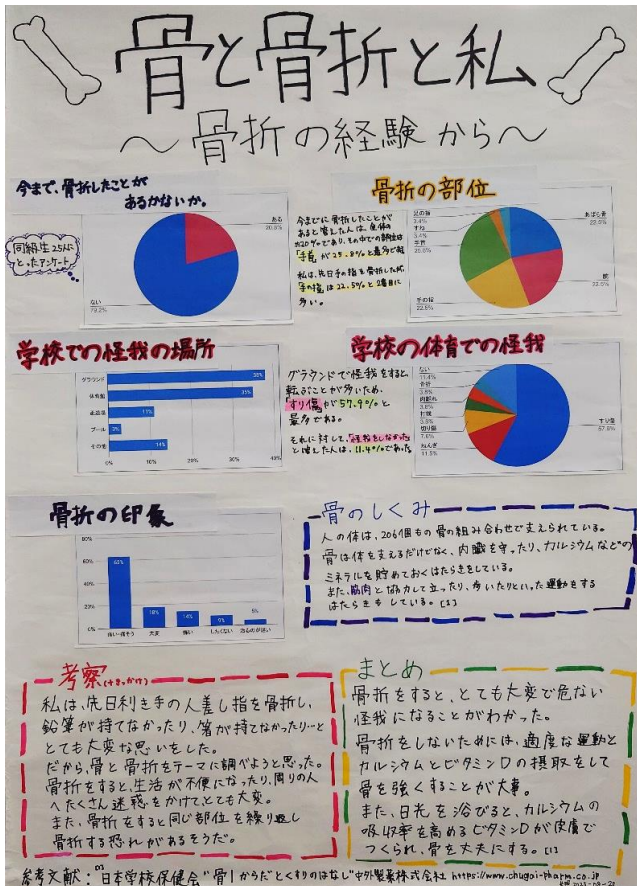 骨と骨折と私
〜骨折の経験から〜
今まで、骨折したことが
あるかないか。
同級生25人に
とったアンケート
ある
20.8%
ない
79.2%
今までに骨折したことが
あると答えた人は、全体の
約20%であり、その中での部位は
「手首」が25.8%と最多で、
私は、先日手の指を骨折したが、
「手の指」は22.5%と2番目に
多い。
骨折の部位
足の指
3.4%
すね
3.4%
手首
25.8%
手の指
22.5%
あばら骨
22.5%
腕
22.5%
学校での怪我の場所
グラウンド
38%
体育館
35%
走路場
11%
プール
3%
その他
14%
0%
10%
20%
30%
40%
グラウンドで怪我をすると、
転ぶことが多いため、
「すり傷」が57.9%と
最多である。
それに対して、「怪我をしなかった」
と答えた人は、11.4%であった
学校の体育での怪我
ない
11.4%
骨折
3.8%
肉離れ
3.8%
打撲
切り傷
7.6%
ねんざ
11.5%
すり傷
57.9%
骨折の印象
80%
60%
40%
20%
0%
63%
18%
14%
9%
5%
痛い・痛そう
大変
怖い
したくない
治るのが遅い
骨のしくみ
人の体は、206個もの骨の組み合わせで支えられている。
骨は体を支えるだけでなく、内臓を守ったり、カルシウムなどの
ミネラルを貯めておくはたらきをしている。
また、筋肉と協力して立ったり、歩いたりといった運動をする
はたらきもしている。[1]
考察(+きっかけ)
私は、先日利き手の人差し指を骨折し、
鉛筆が持てなかったり、箸が持てなかったり…と
とても大変な思いをした。
だから、骨と骨折をテーマに調べようと思った。
骨折をすると、生活が不便になったり、周りの人
へたくさん迷惑をかけて、とても大変。
また、骨折をすると同じ部位を繰り返し
骨折する恐れがあるそうだ。
まとめ
骨折をすると、とても大変で危ない
怪我になることがわかった。
骨折をしないためには、適度な運動と
カルシウムとビタミンDの摂取をして
骨を強くすることが大事。
また、日光を浴びると、カルシウムの
吸収率を高めるビタミンDが皮膚で
つくられ、骨を丈夫にする。[1]
参考文献:[1]日本学校保健会"骨|からだとくすりのはなし"中外製薬株式会社 https://www.chugai-pharm.co.jp